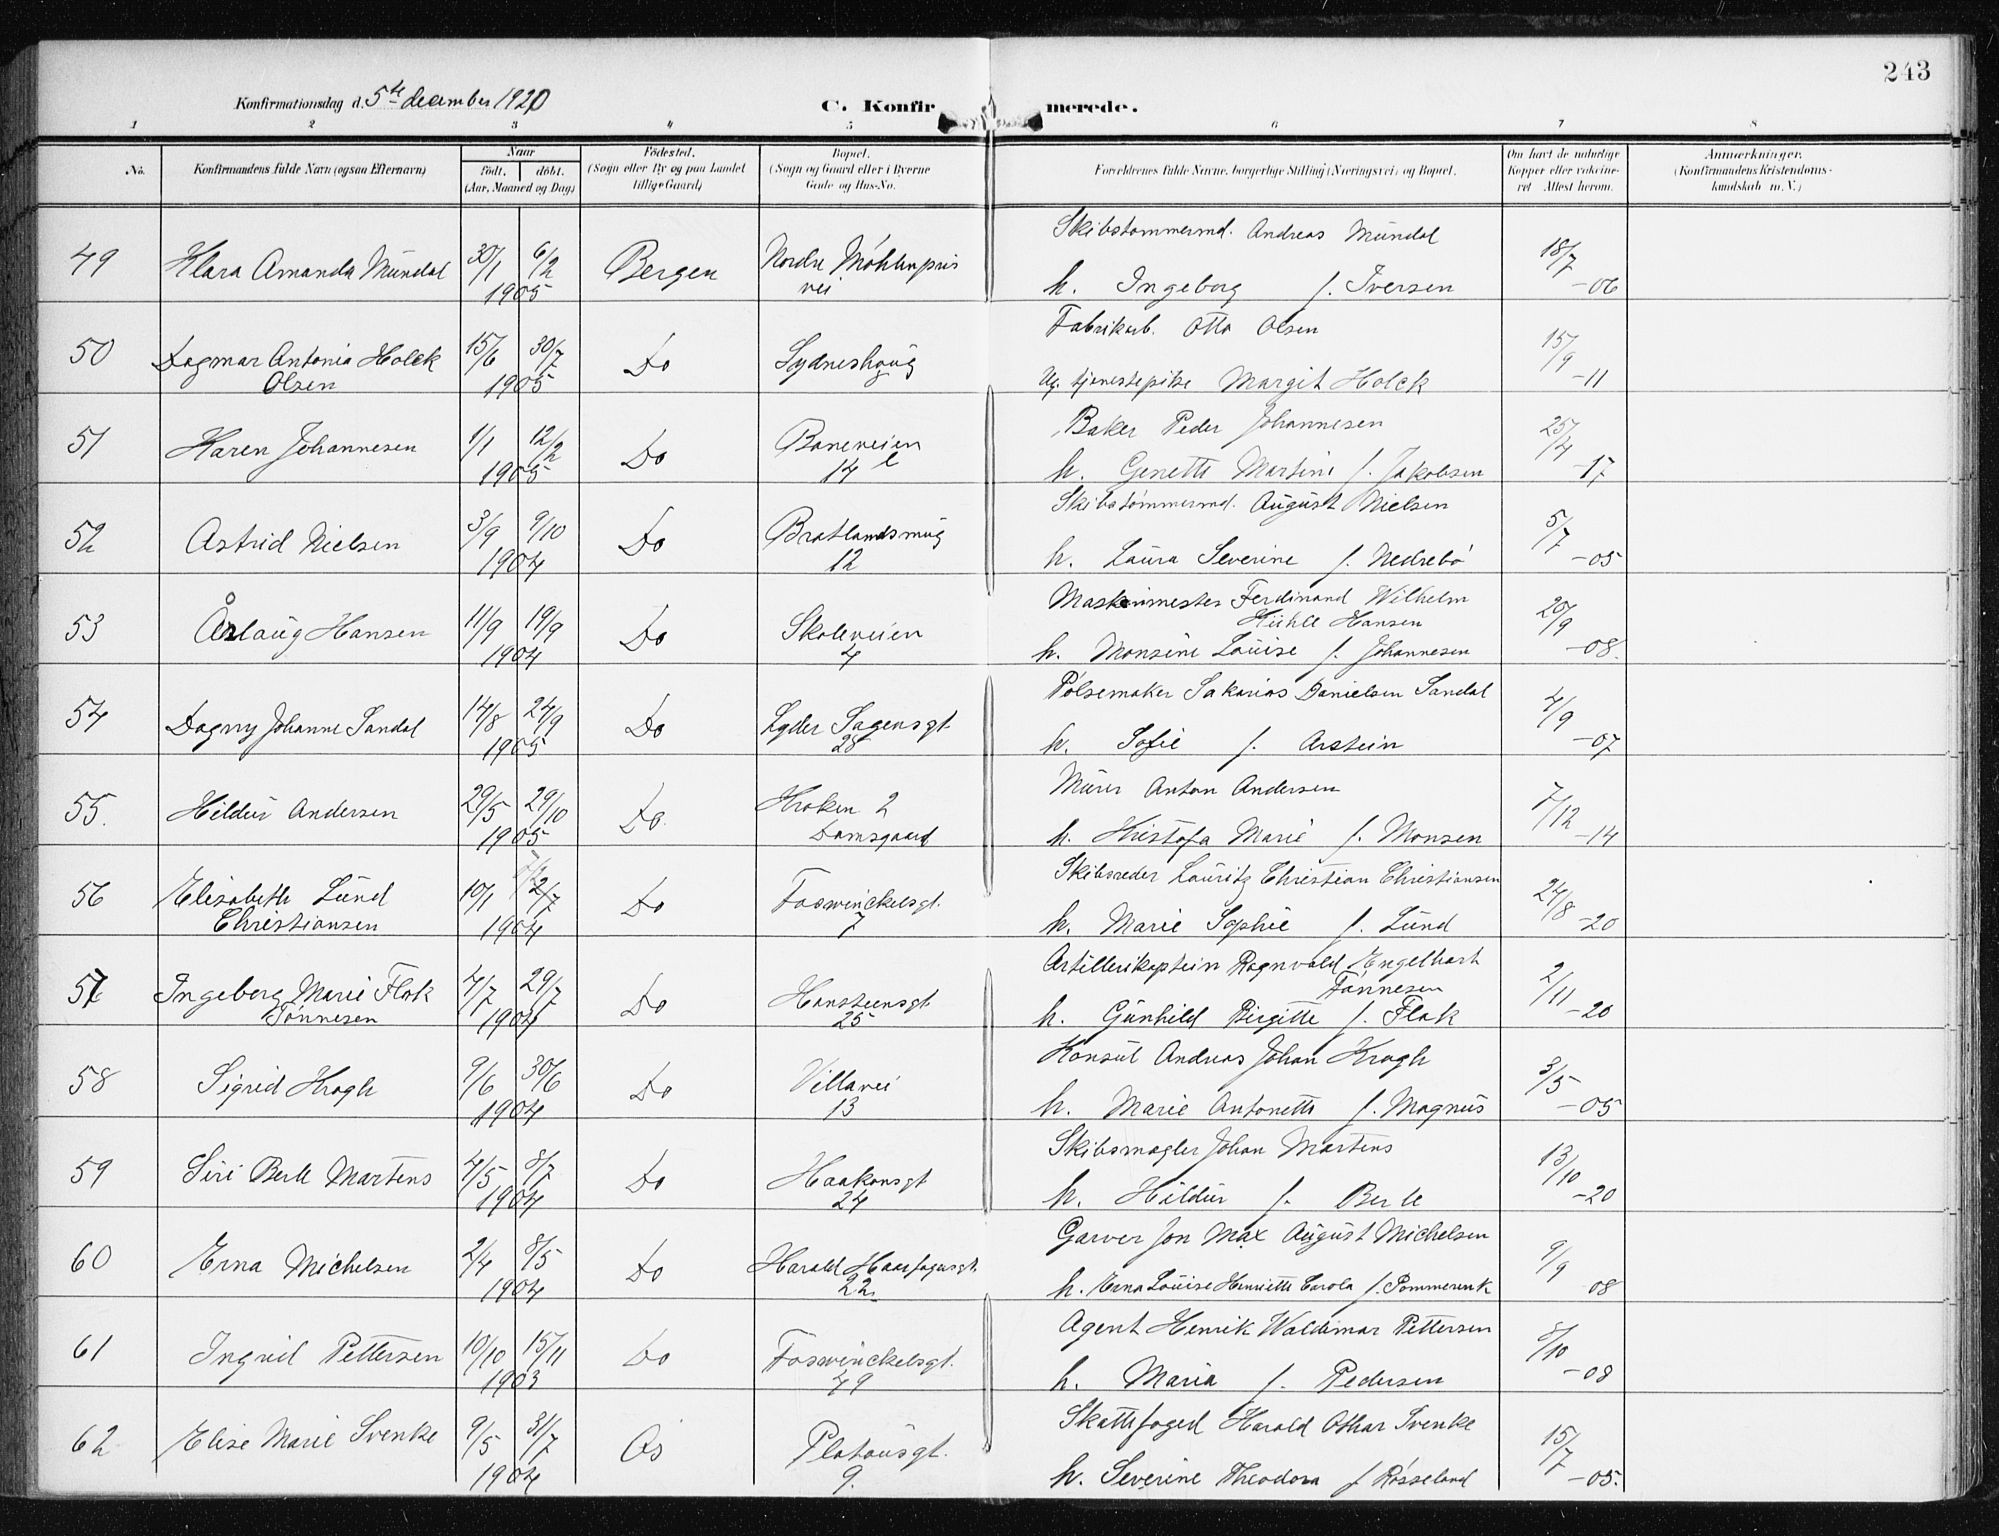 243
Konfirmationsdag d. 5te december 1920
C. Konfirmerede.
1 2 3 4 5 6 7 8
No.
Konfirmandens fulde Navn (ogsaa Efternavn)
Naar
født. døbt.
(Aar, Maaned og Dag)
Fødested.
(Sogn eller By og paa Landet
tillige Gaard)
Bopæl.
(Sogn og Gaard eller i Byerne
Gade og Hus-No.
Forældrenes fulde Navne, borgerlige Stilling (Næringsvei) og Bopæl.
Om havt de naturlige
Kopper eller vakcine-
ret Attest herom.
Anmærkninger.
(Konfirmandens Kristendoms-
kundskab m. V.)
Skibstømmermd. Andreas Mündal
49 Klara Amanda Mündal 30/1 6/2 Bergen Nordre Möhlenpris 18/7
1905 vei h. Ingeborg f. Iversen -06
Fabrikarb. Otto Olsen
50 Dagmar Antonia Holck 15/6 30/7 Do Sydneshaug 15/9
Olsen 1905 Ug. tjenestepike Margit Holck -11
Baker Peder Johannesen
51 Karen Johannesen 1/1 12/2 Do Baneveien 25/4
1905 14 h. Genette Martine f. Jakobsen -17
Skibstømmermd. August Nielsen
52 Astrid Nielsen 3/9 9/10 Do Bratlandsmug 5/7
1904 12 h. Laura Severine f. Nedrebö -05
Maskinmester Ferdinand Wilhelm
53 Åslaug Hansen 11/9 19/9 Do Skoleveien Hansen 20/9
1904 4 h. Monsine Louise f. Johannesen -08.
Pölsemaker Sakarias Danielsen Sandal
54 Dagny Johanne Sandal 14/8 24/9 Do Lyder Sagensgt. 4/9
1905 28 h. Sofie f. Arstein -07
Murer Anton Andersen
55. Hildur Andersen 29/5 29/10 Do. Kroken 2 7/12
1905 Damsgaard h. Kristofa Marie f. Monsen -14
Skibsreder Lauritz Christian Christiansen
56 Elisabeth Lund 10/1 2/7 Do Fosswinckelsgt. 24/8
Christiansen 1904 7 h. Marie Sophie f. Lund -20
Artillerikaptein Ragnvald Engelhart
57 Ingeborg Marie Flok 4/7 29/7 Do Hansteensgt. Tönnesen 2/11
Tönnesen 1904 25 h. Gunhild Birgitte f. Flok -20
Konsul Andreas Johan Krogh
58 Sigrid Krogh 9/6 30/6 Do Villavei 3/5
1904 13 h. Marie Antonette f. Magnus -05
Skibsmægler Johan Martens
59 Siri Berle Martens 4/5 8/7 Do Haakonsgt 13/10
1904 24 h. Hildur f. Berle -20
Garver Jon Max August Michelsen
60 Erna Michelsen 2/4 8/5 Do Harald Haarfagersgt. 9/9
1904 22. h. Erna Louise Henriette Carola f. Pommerenk 08
Agent Henrik Waldimar Pettersen
61 Ingvil Pettersen 10/10 15/11 Do Fosswinckelsgt. 8/10
1903 49 h. Maria f. Pedersen -08
Skattefoged Harald Othar Svenke
62 Elise Marie Svenke 9/5 31/7 Ås Platousgt. 15/7
1904 9. h. Severine Theodora f. Rösseland -05.